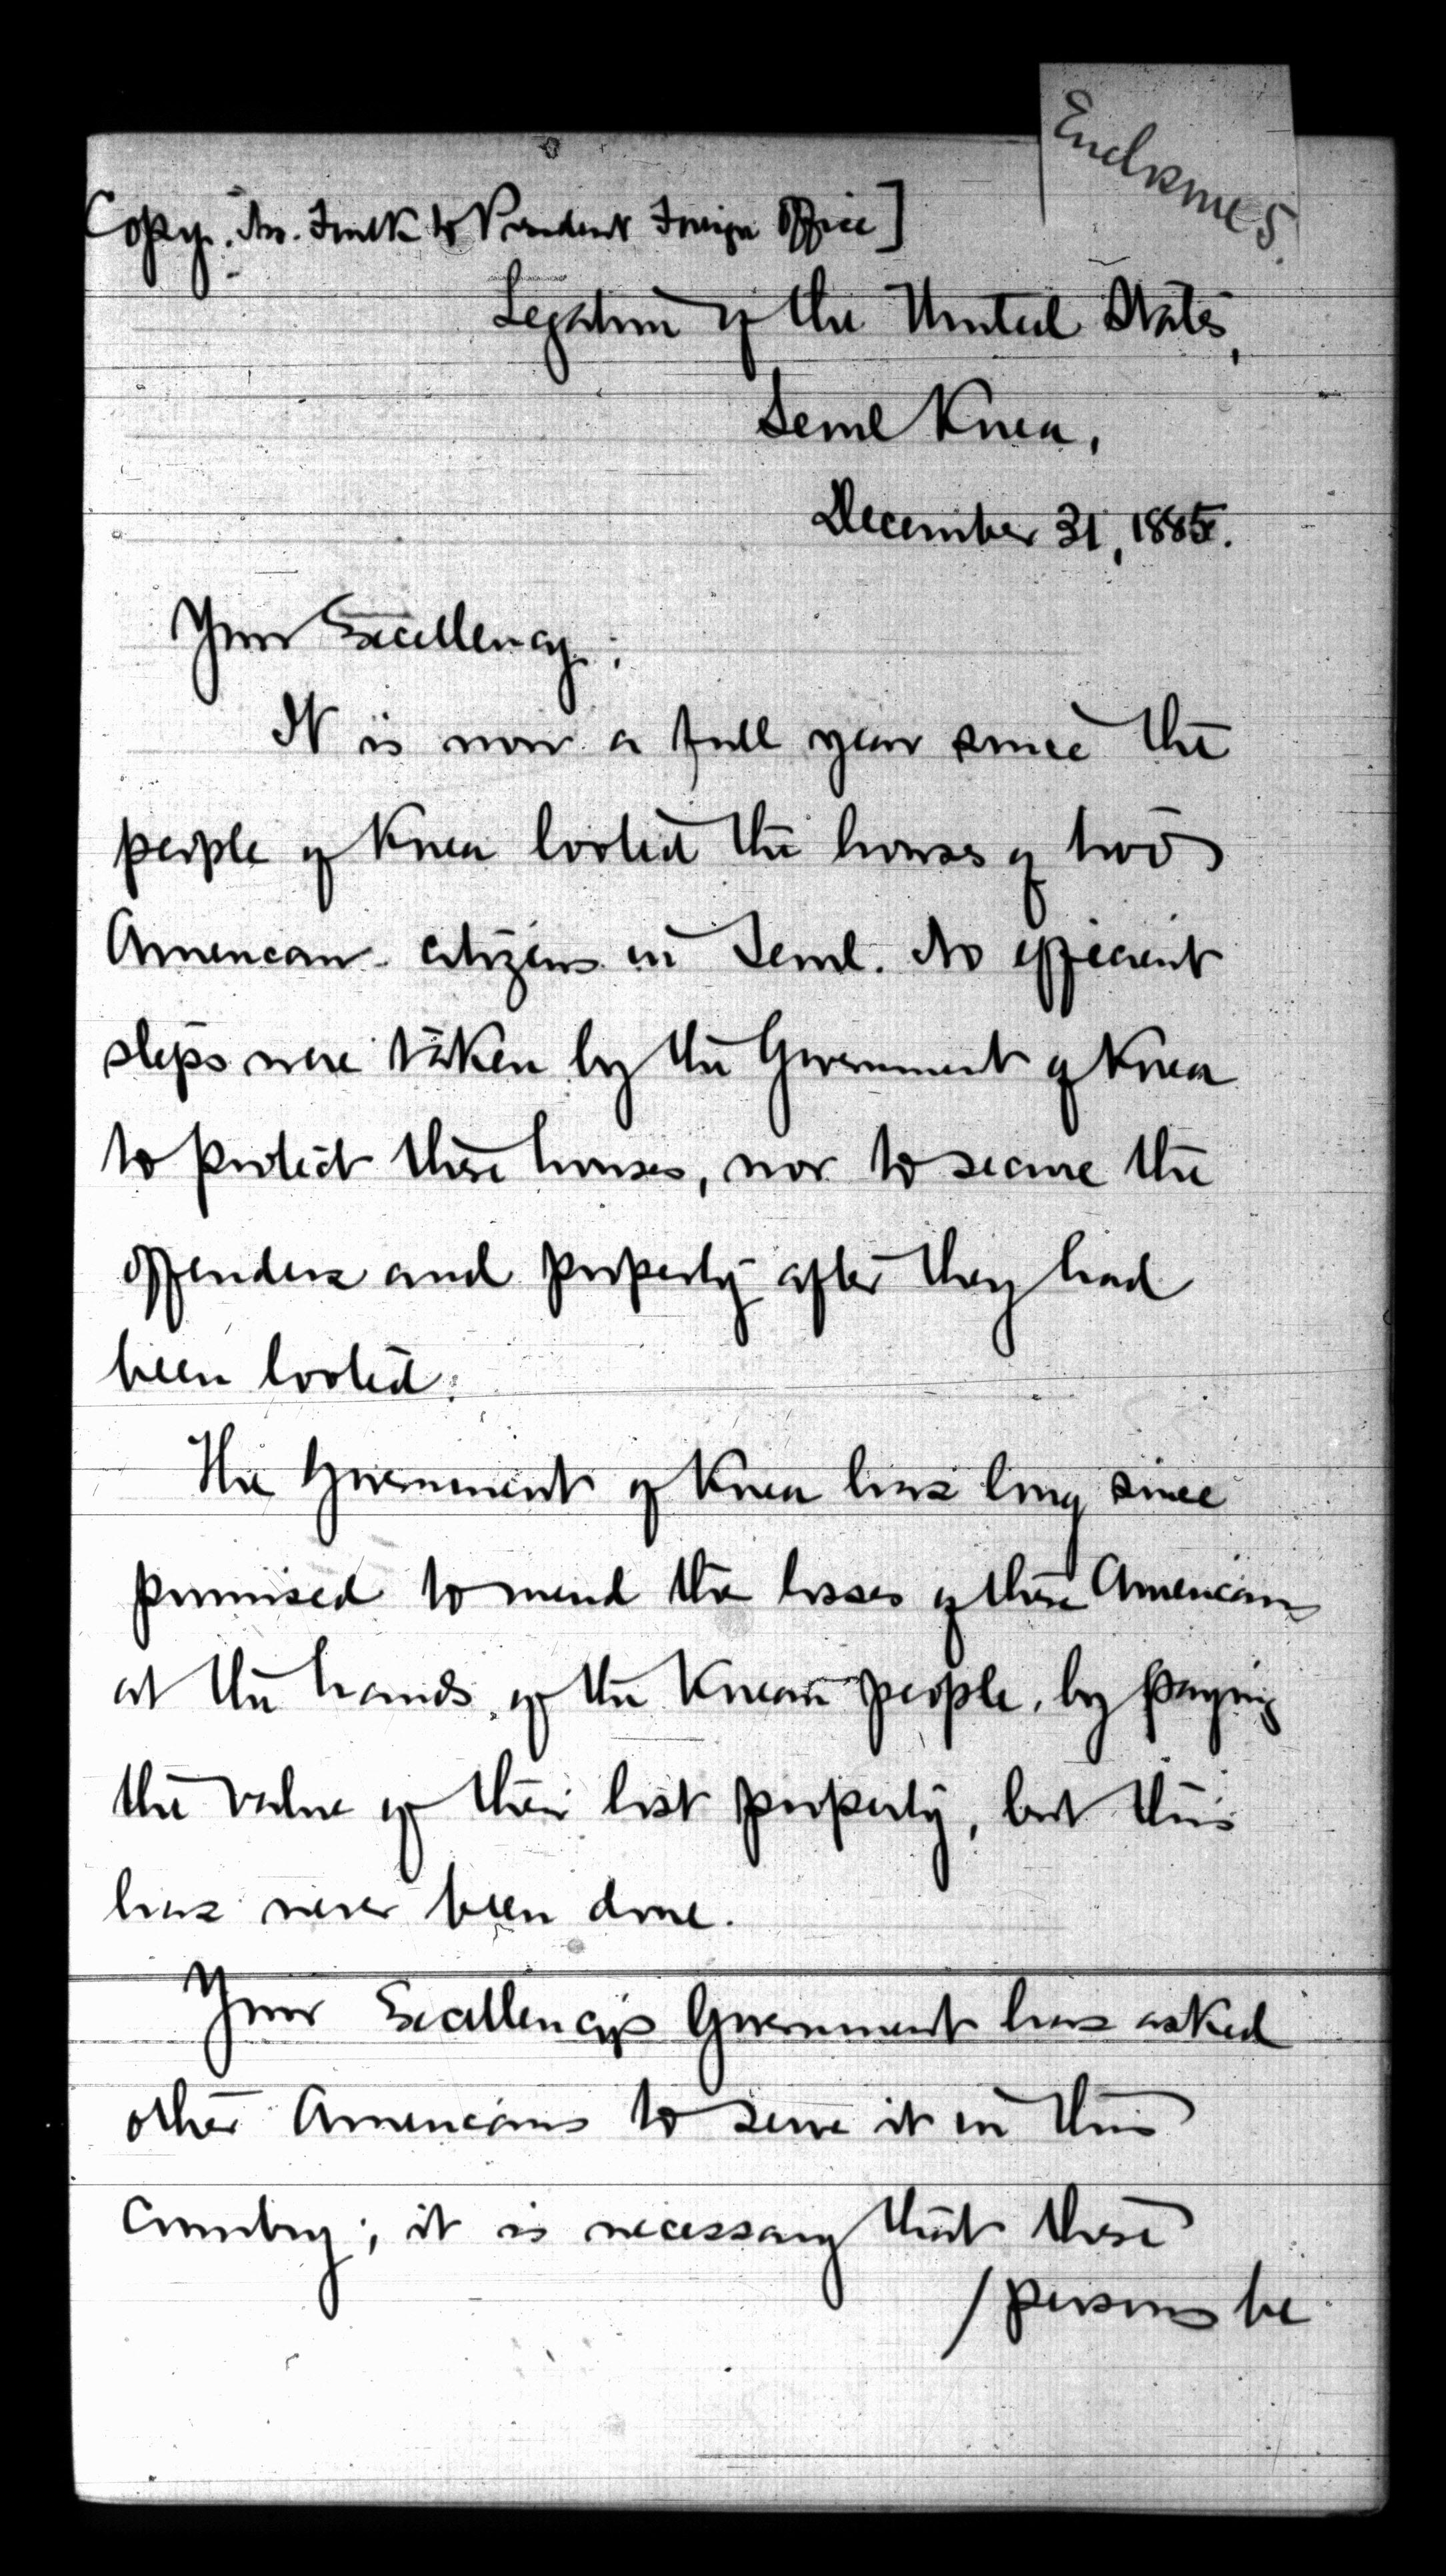 Enclosure 5.
Copy. Mr. Foulk to President Foreign Office]
Legation of the United States,
Seoul Korea,
December 31, 1885.
Your Excellency:
It is now a full year since the
people of Korea looted the houses of two
American citizens in Seoul. No efficient
steps were taken by the Government of Korea
to protect these houses, nor to secure the
offenders and property after they had
been looted.
The Government of Korea has long since
promised to mend the losses of these Americans
at the hands of the Korean people, by paying
the value of their lost property, but this
has never been done.
Your Excellency's Government has asked
other Americans to serve it in this
Country; it is necessary that these
/persons be